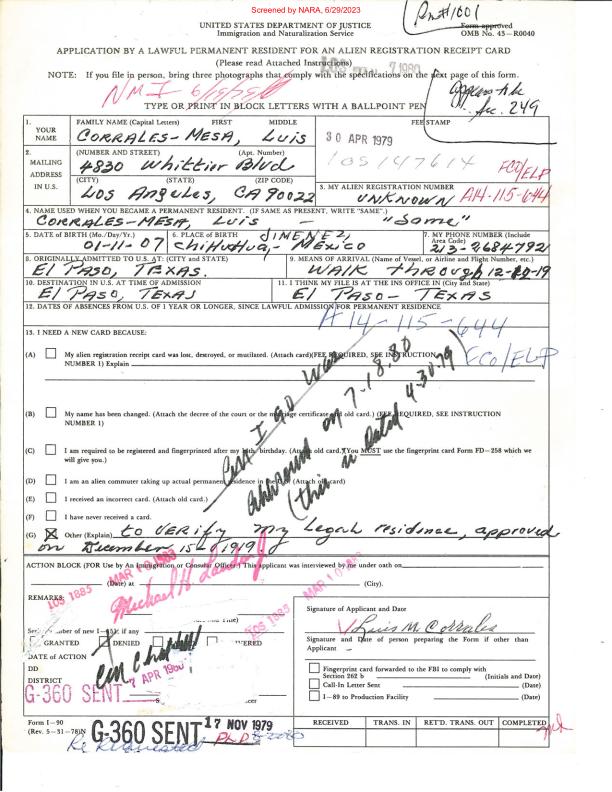 Screened by NARA, 6/29/2023
Rm#1001
UNITED STATES DEPARTMENT OF JUSTICE
Immigration and Naturalization Service
Form approved
OMB No. 43-R0040
APPLICATION BY A LAWFUL PERMANENT RESIDENT FOR AN ALIEN REGISTRATION RECEIPT CARD
(Please read Attached Instructions)
7 1980
NOTE: If you file in person, bring three photographs that comply with the specifications on the next page of this form.
NMI
TYPE OR PRINT IN BLOCK LETTERS WITH A BALLPOINT PEN
Sec. 249
1. YOUR NAME
FAMILY NAME (Capital Letters) FIRST MIDDLE
CORRALES-MESA, Luis
FEE STAMP
30 APR 1979
2. MAILING ADDRESS IN U.S.
(NUMBER AND STREET) (Apt. Number)
4830 Whittier Blvd
(CITY) (STATE) (ZIP CODE)
LOS Angeles, CA 90022
FCO/ELP
3. MY ALIEN REGISTRATION NUMBER
UNKNOWN A14-115-644
4. NAME USED WHEN YOU BECAME A PERMANENT RESIDENT. (IF SAME AS PRESENT, WRITE "SAME".)
CORRALES-MESA, Luis - "Same"
5. DATE OF BIRTH (Mo./Day/Yr.)
01-11-07
6. PLACE OF BIRTH
JIMENEZ,
Chihuahua, - Mexico
7. MY PHONE NUMBER (Include Area Code)
213-2684792
8. ORIGINALLY ADMITTED TO U.S. AT: (CITY and STATE)
El PASO, TEXAS.
9. MEANS OF ARRIVAL (Name of Vessel, or Airline and Flight Number, etc.)
WALK through
10. DESTINATION IN U.S. AT TIME OF ADMISSION
El PASO, TEXAS
11. I THINK MY FILE IS AT THE INS OFFICE IN (City and State)
El PASO- TEXAS
12. DATES OF ABSENCES FROM U.S. OF 1 YEAR OR LONGER, SINCE LAWFUL ADMISSION FOR PERMANENT RESIDENCE
A14-115-644
FCO/ELP
13. I NEED A NEW CARD BECAUSE:
(A) My alien registration receipt card was lost, destroyed, or mutilated. (Attach card)(FEE REQUIRED, SEE INSTRUCTION NUMBER 1) Explain
(B) My name has been changed. (Attach the decree of the court or the marriage certificate and old card.) (FEE REQUIRED, SEE INSTRUCTION NUMBER 1)
(C) I am required to be registered and fingerprinted after my 14th birthday. (Attach old card.) (You MUST use the fingerprint card Form FD-258 which we will give you.)
(D) I am an alien commuter taking up actual permanent residence in the U.S. (Attach old card)
(E) I received an incorrect card. (Attach old card.)
(F) I have never received a card.
on 7-18.80
(this is dated 4-30-79)
(G) Other (Explain) to VERify my Legal residence, approved
on December 15th 1919.
ACTION BLOCK (FOR Use by An Immigration or Consular Officer.) This applicant was interviewed by me under oath on
(Date) at (City).
REMARKS:
LOS 1885
Michael H
Signature of Applicant and Date
Luis M. Corrales
Signature and Date of person preparing the Form if other than Applicant
GRANTED DENIED
DATE of ACTION
DD
DISTRICT
7 APR 1980
Fingerprint card forwarded to the FBI to comply with Section 262 b (Initials and Date)
Call-In Letter Sent (Date)
I-89 to Production Facility (Date)
G-360 SENT
Form I-90
(Rev. 5-31-78)N
G-360 SENT 17 NOV 1979
RECEIVED TRANS. IN RET'D. TRANS. OUT COMPLETED
Re Requested